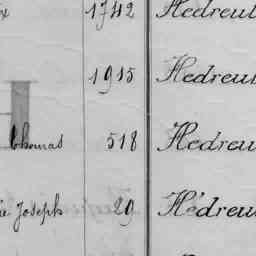 x 1742 Hedreul
1915 Hedreul
Thomas 518 Hedreu
ie Joseph 29 Hédreu